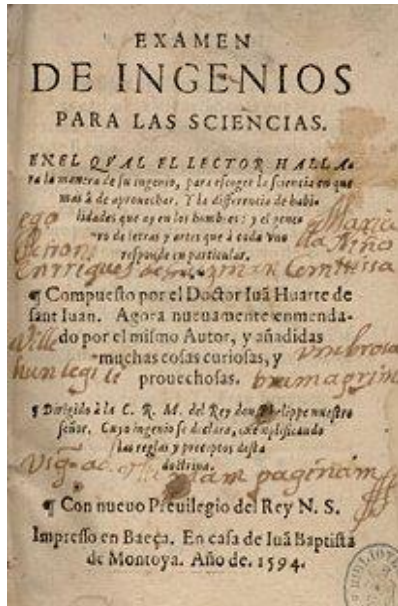 EXAMEN
DE INGENIOS
PARA LAS SCIENCIAS.
EN EL QVAL EL LECTOR HALLA-
ra la manera de su ingenio, para escoger la sciencia en que
mas à de aprouechar. Y la differencia de habi-
lidades que ay en los hombres: y el gene-
ro de letras y artes que à cada vno
responde en particular.
¶ Compuesto por el Doctor Iuã Huarte de
sant Iuan. Agora nueuamente enmenda-
do por el mismo Autor, y añadidas
muchas cosas curiosas, y
prouechosas.
¶ Dirigido à la C. R. M. del Rey don Philippe nuestro
señor. Cuyo ingenio se declara, exemplificando
las reglas y preceptos desta
doctrina.
paginam
¶ Con nueuo Preuilegio del Rey N. S.
Impresso en Baeça. En casa de Iuã Baptista
de Montoya. Año de. 1594.